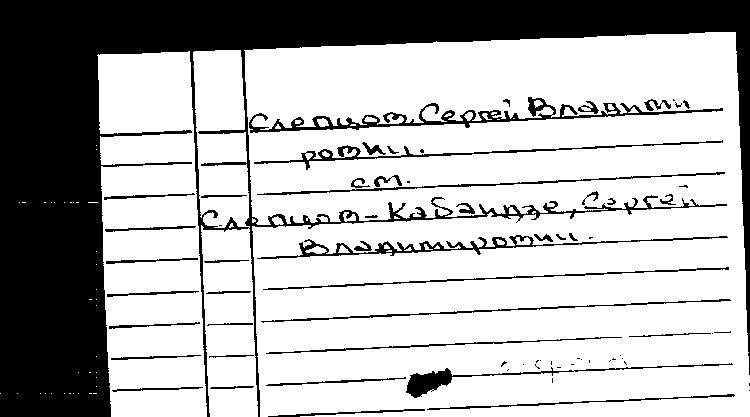 Слепцов, Сергей Владими
рович.
см.
Слепцов-Кабаидзе, Сергей
Владимирович.